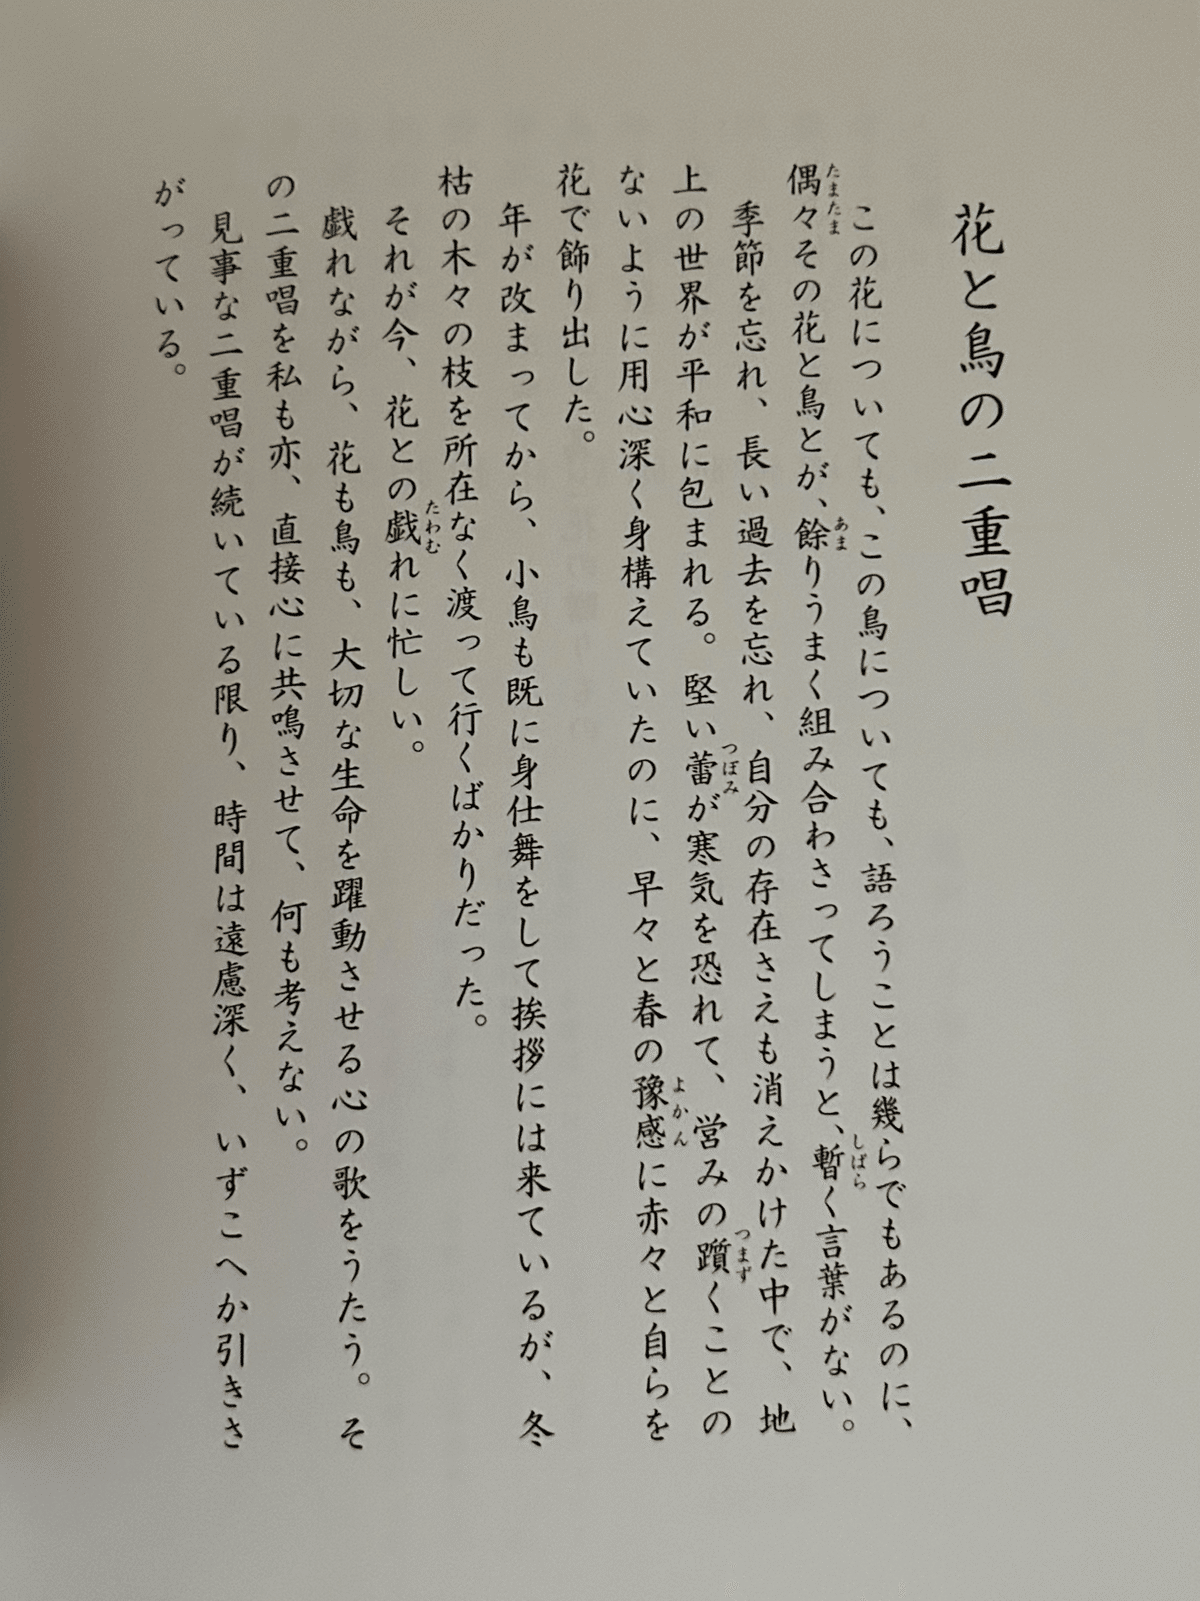 花と鳥の二重唱
この花についても、この鳥についても、語ろうことは幾らでもあるのに、
偶々その花と鳥とが、餘りうまく組み合わさってしまうと、暫く言葉がない。
季節を忘れ、長い過去を忘れ、自分の存在さえも消えかけた中で、地
上の世界が平和に包まれる。堅い蕾が寒気を恐れて、営みの躓くことの
ないように用心深く身構えていたのに、早々と春の豫感に赤々と自らを
花で飾り出した。
年が改まってから、小鳥も既に身仕舞をして挨拶には来ているが、冬
枯の木々の枝を所在なく渡って行くばかりだった。
それが今、花との戯れに忙しい。
戯れながら、花も鳥も、大切な生命を躍動させる心の歌をうたう。そ
の二重唱を私も亦、直接心に共鳴させて、何も考えない。
見事な二重唱が続いている限り、時間は遠慮深く、いずこへか引きさ
がっている。